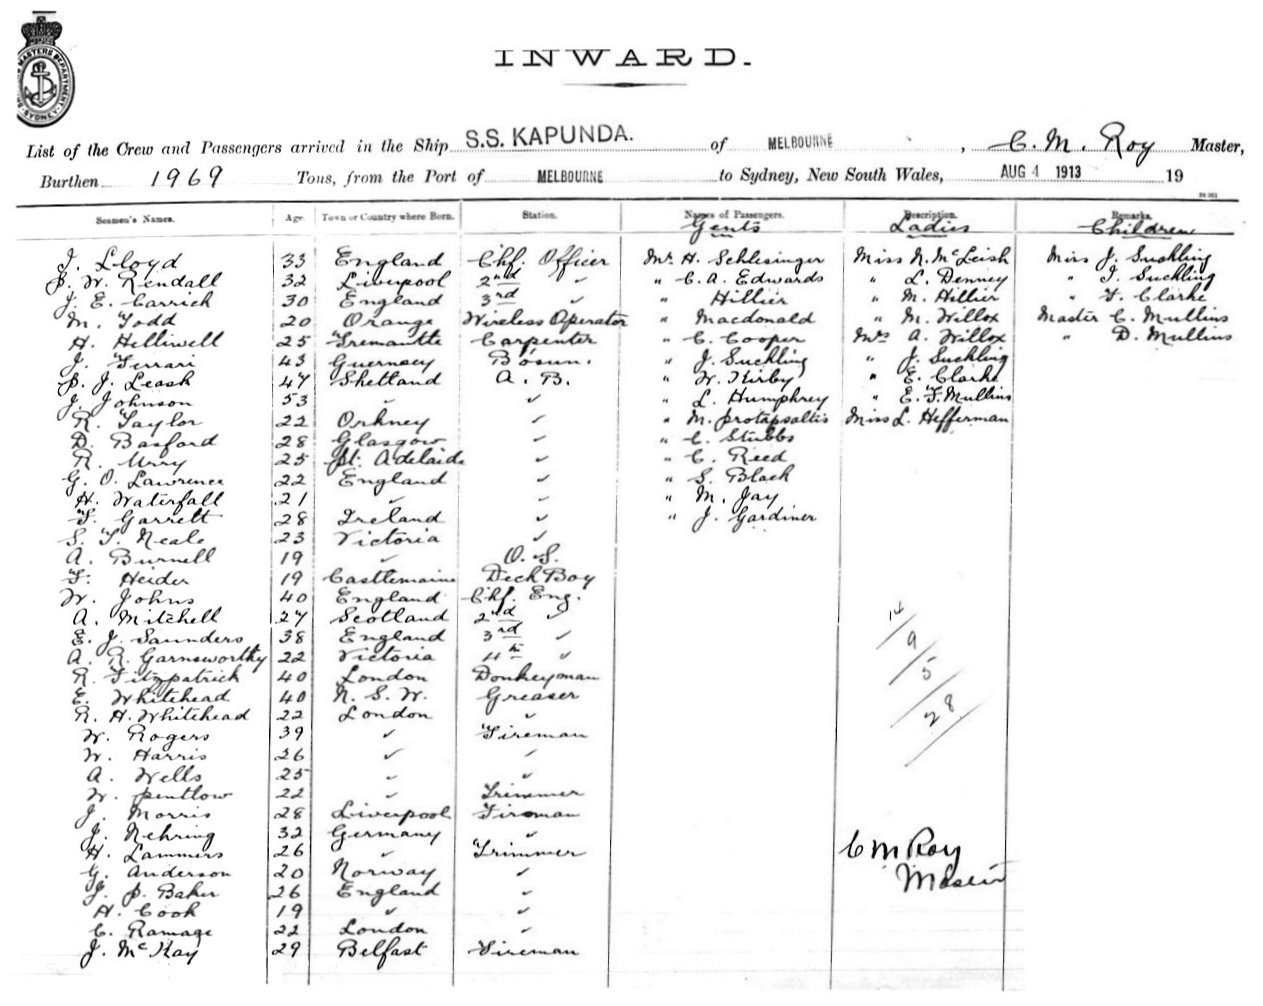 SHIPPING MASTERS DEPARTMENT · SYDNEY ·
INWARD.
List of the Crew and Passengers arrived in the Ship S.S. KAPUNDA. of MELBOURNE, C. M. Roy Master,
Burthen 1969 Tons, from the Port of MELBOURNE to Sydney, New South Wales, AUG 4 1913 19
Seamen's Names. Age. Town or Country where Born. Station. Names of Passengers. Description. Remarks.
Gents Ladies Children
J. Lloyd 33 England Chf. Officer Mr. H. Schlesinger Miss N. McLeish Miss J. Suckling
P. W. Kendall 32 Liverpool 2nd " " C. A. Edwards " L. Denney " I. Suckling
J. E. Carrick 30 England 3rd " " Hillier " M. Hillier " F. Clarke
M. Todd 20 Orange Wireless Operator " Macdonald " M. Willox Master C. Mullins
H. Helliwell 25 Fremantle Carpenter " C. Cooper Mrs A. Willox " D. Mullins
J. Ferrari 43 Guernsey Bosun. " J. Suckling " J. Suckling
P. J. Leask 47 Shetland A. B. " W. Kirby " E. Clarke
J. Johnson 53 " " " L. Humphrey " E. F. Mullins
R. Taylor 22 Orkney " " M. Protapsaltis Miss L. Hefferman
D. Basford 28 Glasgow " " C. Stubbs
R. Urry 25 Pt. Adelaide " " C. Reed
G. O. Lawrence 22 England " " S. Black
H. Waterfall 21 " " " M. Jay
F. Garrett 28 Ireland " " J. Gardiner
S. T. Neale 23 Victoria "
A. Burnell 19 " O. S.
F. Heider 19 Castlemaine Deck Boy
W. Johns 40 England Chf. Eng.
A. Mitchell 27 Scotland 2nd " 14
E. J. Saunders 38 England 3rd " 9
A. R. Garnsworthy 22 Victoria 4th "
R. Fitzpatrick 40 London Donkeyman 5
E. Whitehead 40 N. S. W. Greaser
R. H. Whitehead 22 London " 28
W. Rogers 39 " Fireman
W. Harris 26 " "
A. Wells 25 " "
W. Pentlow 22 " Trimmer
J. Morris 28 Liverpool Fireman
J. Nehring 32 Germany "
H. Lammers 26 " Trimmer C M Roy
G. Anderson 20 Norway " Master
J. P. Baker 26 England "
H. Cook 19 " "
C. Ramage 22 London "
J. McKay 29 Belfast Fireman